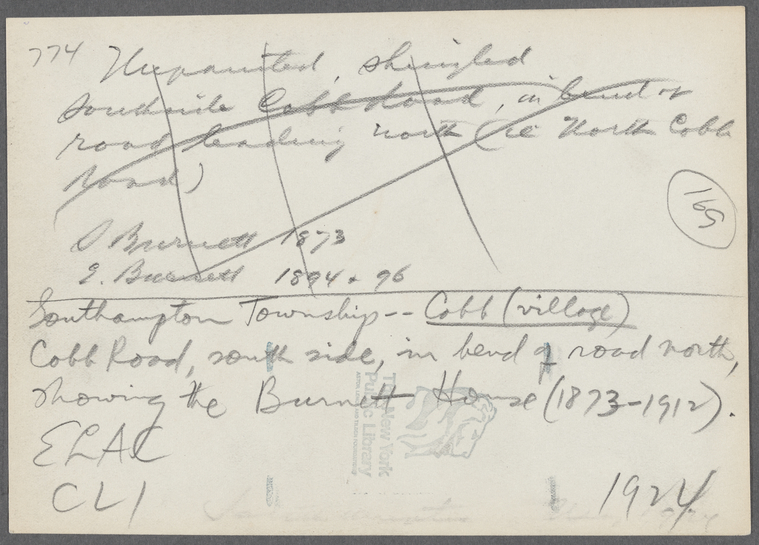 774 Unpainted, shingled
southside Cobb Road, in bend of
road leading north (ie North Cobb
Road)
165
S Burnett 1873
E. Burnett 1894 + 96
Southampton Township -- Cobb (village)
Cobb Road, south side, in bend of road north,
showing the Burnett House (1873-1912).
The New York
Public Library
ELAC
CLI
1924